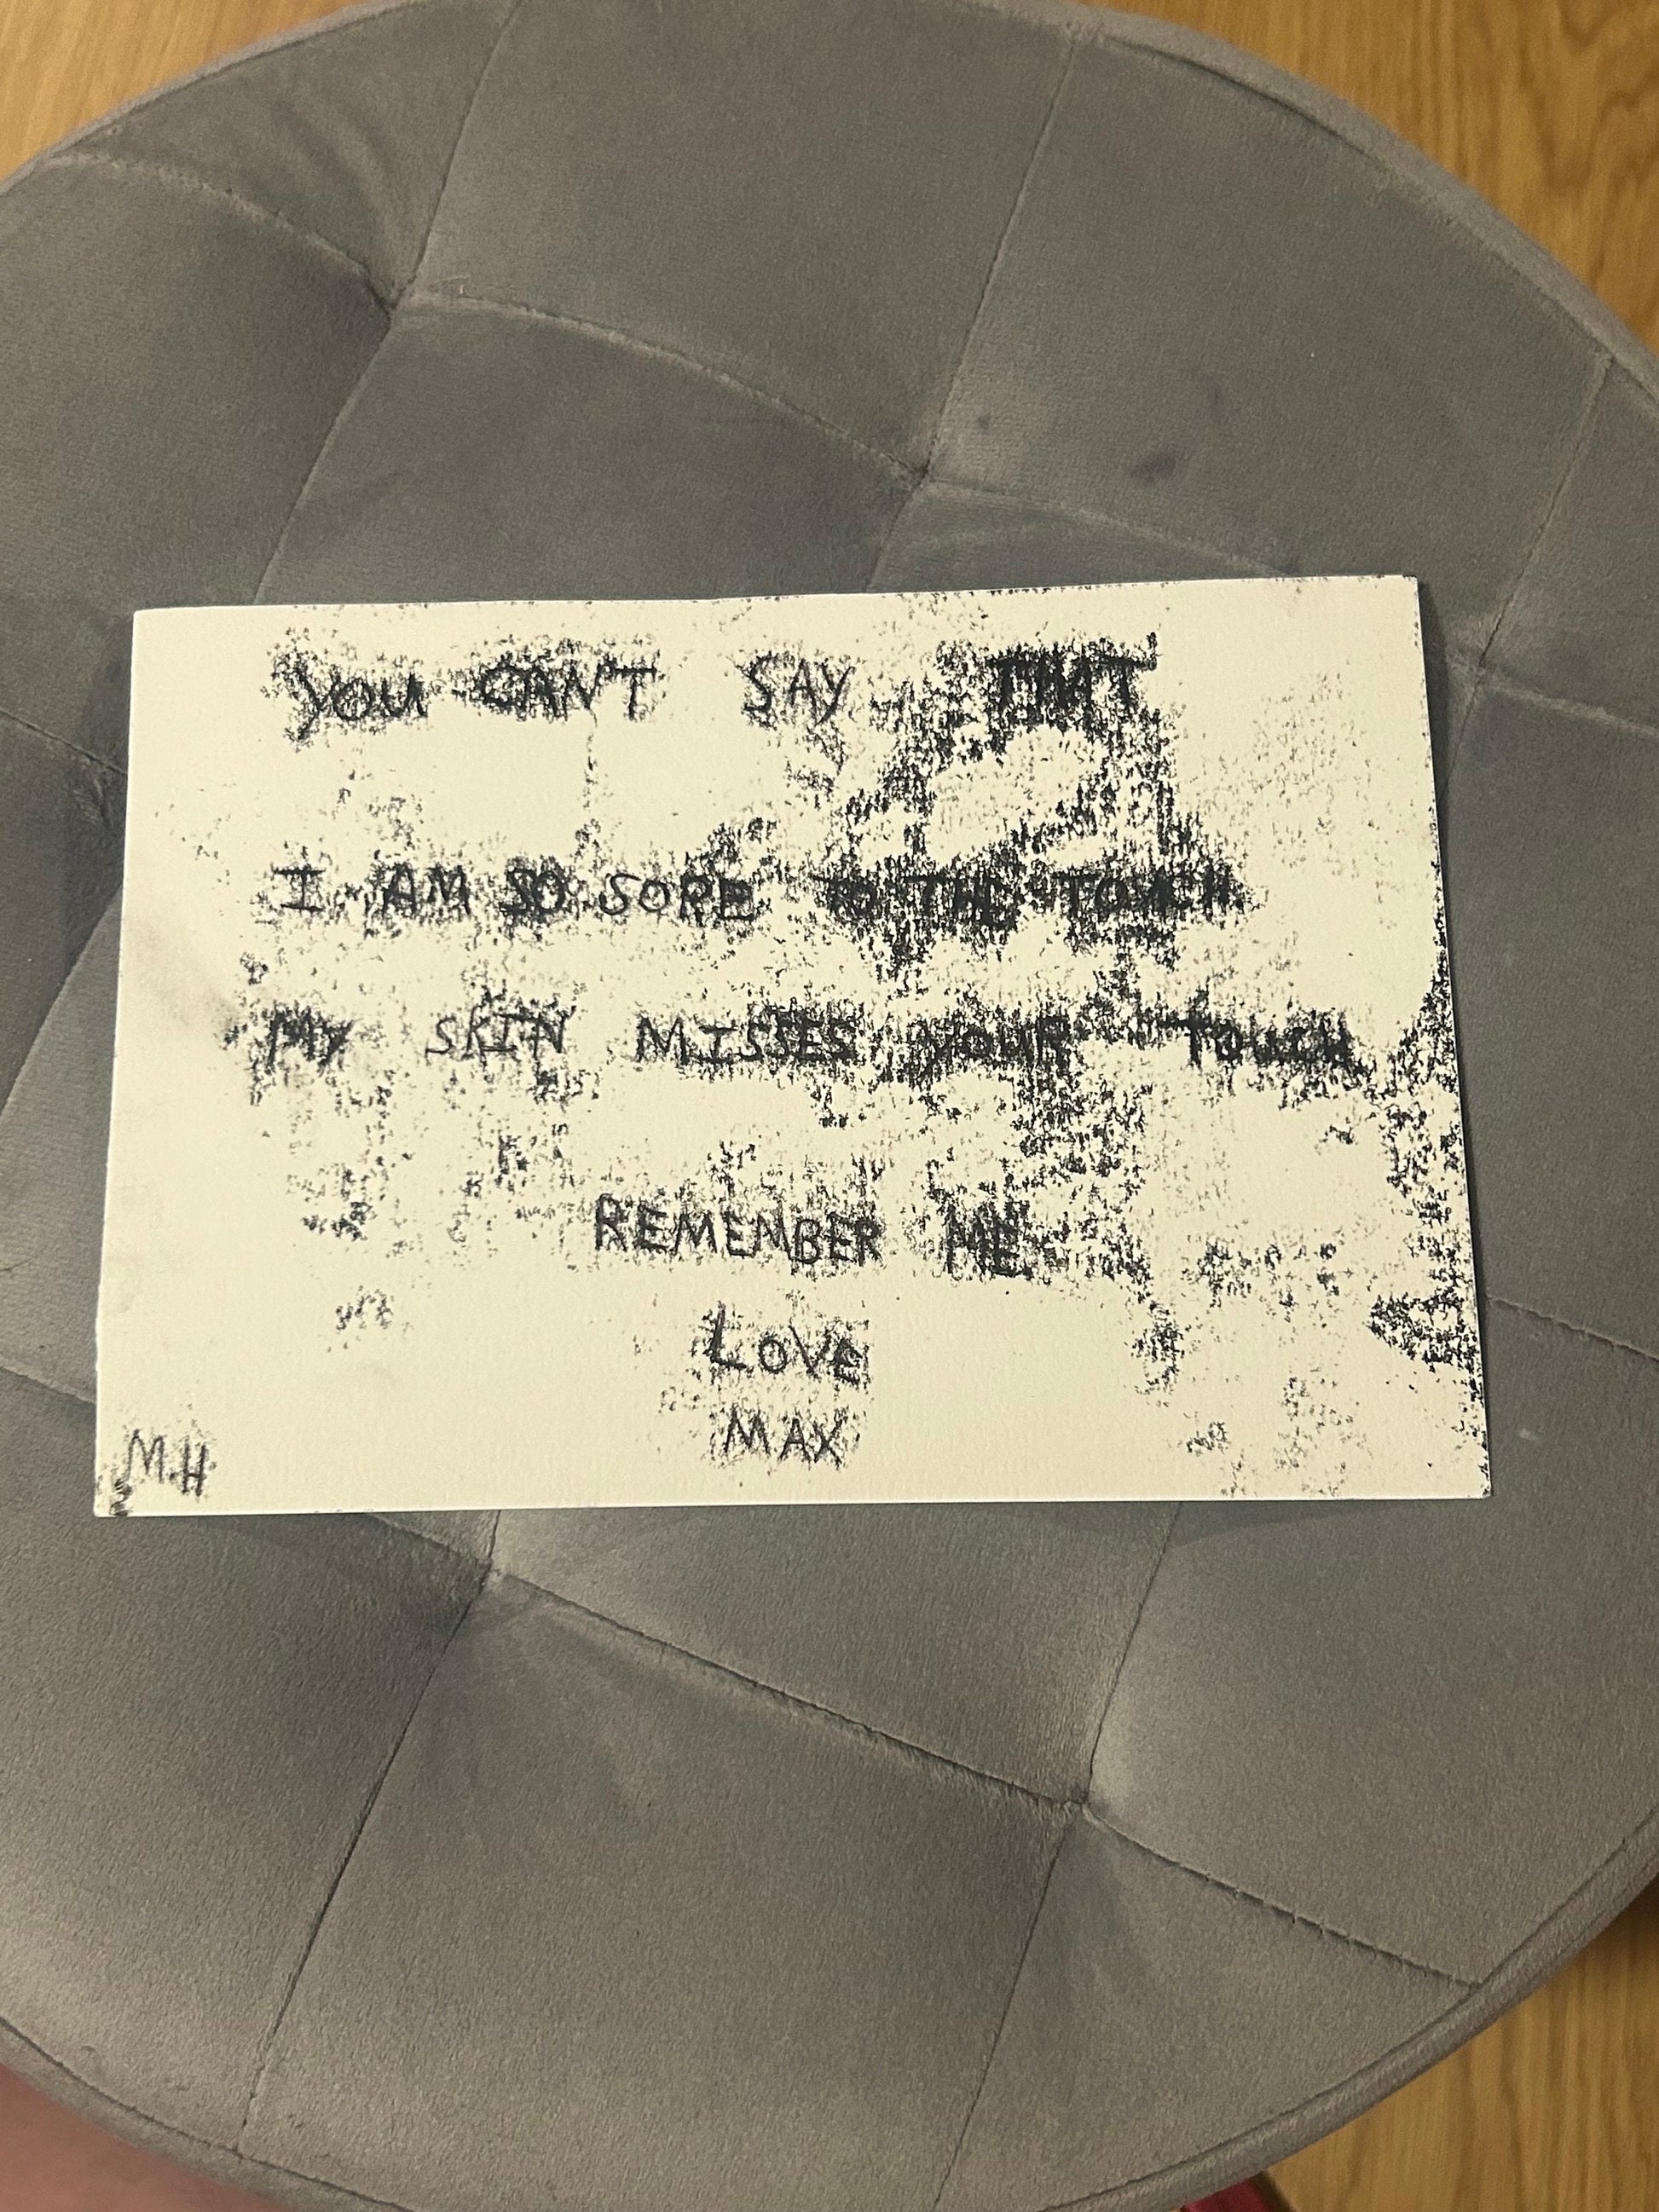 YOU CAN'T SAY THAT
I AM SO SORE TO THE TOUCH
MY SKIN MISSES YOUR TOUCH
REMEMBER ME
LOVE
MAX
MH